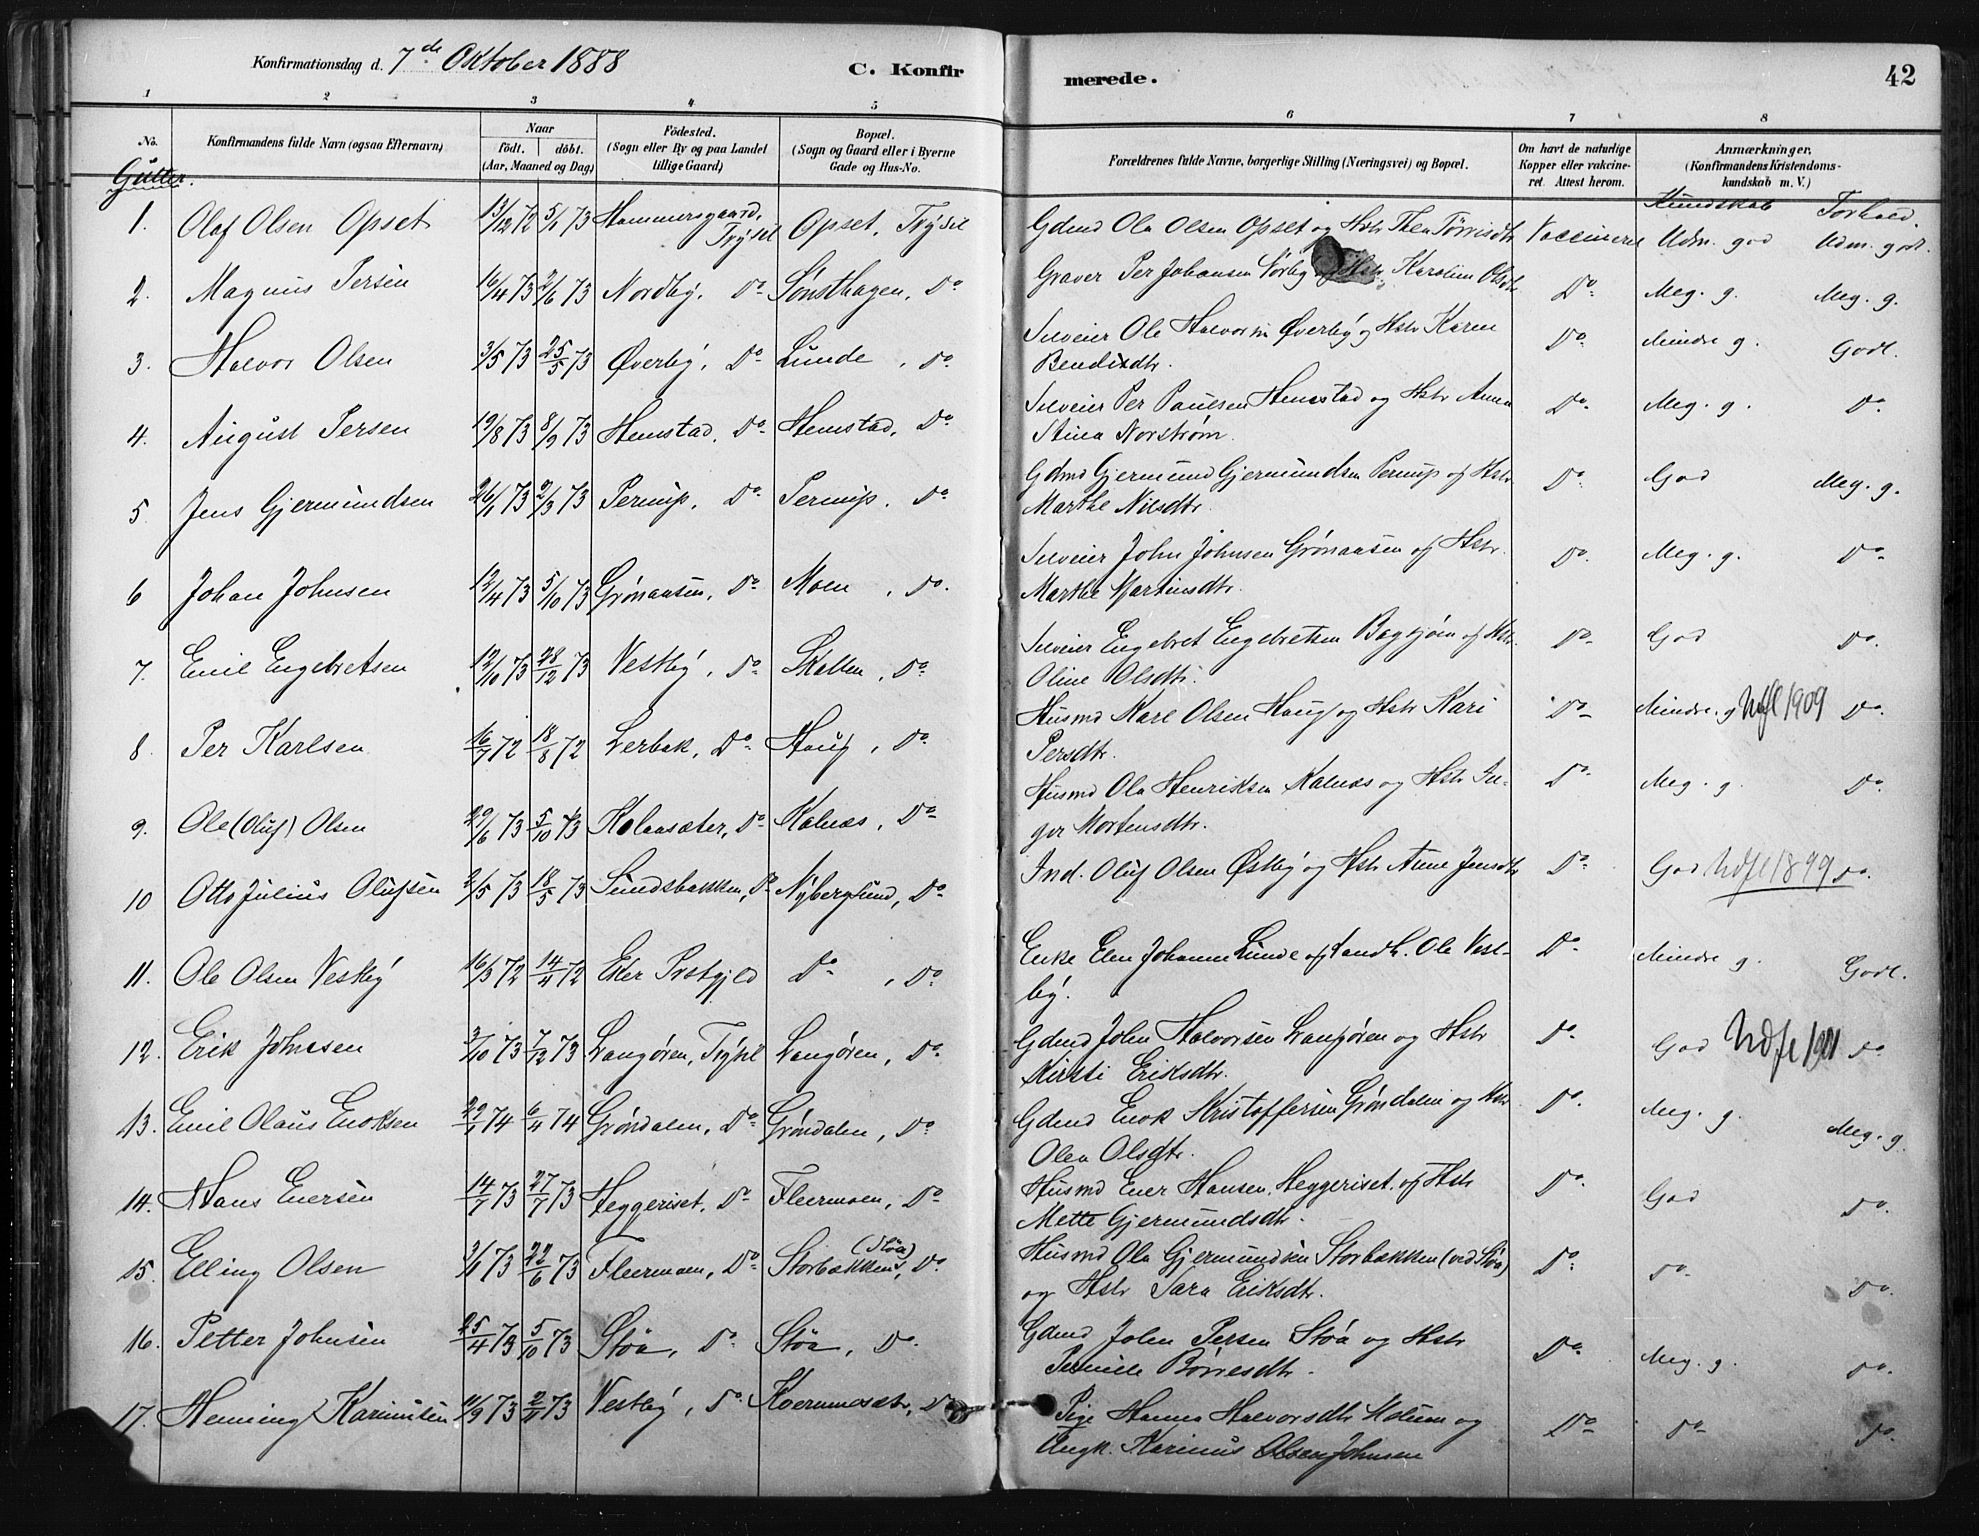 Konfirmationsdag d. 7de Oktober 1888
C. Konfirmerede.
42
1 2 3 4 5 6 7 8
No. Konfirmandens fulde Navn (ogsaa Efternavn) Naar födt. döbt. (Aar, Maaned og Dag) Födested. (Sogn eller By og paa Landet tillige Gaard) Bopæl. (Sogn og Gaard eller i Byerne Gade og Hus-No. Forældrenes fulde Navne, borgerlige Stilling (Næringsvei) og Bopæl. Om havt de naturlige Kopper eller vaccineret. Attest herom. Anmærkninger, (Konfirmandens Kristendomskundskab m. V.)
Gutter. Kundskab Forhold
1. Olaf Olsen Opset 13/12 72 5/1 73 Hammersgaard, Trysil Opset, Trysil Gdmd Ola Olsen Opset og Hstr Thea Törrisdtr Vaccineret Udm. god Udm. godt.
2. Magnus Persen 16/4 73 2/6 73 Nordby, Do Sönsthagen, Do Graver Per Johansen Nörby og Hstr. Karoline Olsdtr Do Meg. g. Meg. g.
3. Halvor Olsen 3/5 73 25/5 73 Øverby, Do Lunde, Do Selveier Ole Halvorsen Øverby og Hstr Karen
Bendixdtr. Do Mindre g. Godt.
4. August Persen 19/8 73 8/9 73 Hemstad, Do Hemstad, Do Selveier Per Paulsen Hemstad og Hstr Anna
Stina Norstrøm. Do Meg. g. Do
5. Jens Gjermundsen 26/1 73 2/3 73 Pernup, Do Pernup, Do Gdmd Gjermund Gjermundsen Pernup og Hstr
Marthe Nilsdtr. Do God Meg. g.
6 Johan Johnsen 12/4 73 5/10 73 Grönaasen, Do Moen, Do. Selveier John Johnsen Grönaasen og Hstr.
Marthe Martinsdtr. Do Meg. g. Do
7. Emil Engebretsen 12/10 73 28/12 73 Vestby, Do Skallen, Do Selveier Engebret Engebretsen Bagsjöen og Hstr.
Oline Olsdtr. Do God Do.
8. Per Karlsen 16/7 72 18/8 72 Lerbak, Do Haug, Do Husmd Karl Olsen Haug og Hstr Kari
Persdtr. Do Mindre g Udfl 1909 Do.
9. Ole (Oluf) Olsen 29/6 73 5/10 73 Kolaasæter, Do Kalnæs, Do Husmd Ola Henriksen Kalnæs og Hstr In-
ger Mortensdtr. Do Meg. g. Do.
10 Otto Julius Olufsen 2/5 73 18/5 73 Sundsbakken, Do Nybergsund, Do Ind. Oluf Olsen Østby og Hstr Anne Jensdtr Do God Udfl 1899 Do.
11. Ole Olsen Vestby 16/3 72 14/4 72 Eker Prstgjld Do, Do Enke Elen Johanne Lunde og Landh. Ole Vest-
by. Do Mindre g. Godt.
12. Erik Johnsen 3/10 73 7/12 73 Langören, Trysil Langören, Do Gdmd John Halvorsen Langören og Hstr
Kirsti Eriksdtr. Do God Udfl 1901 Do
13. Emil Olaus Enoksen 22/1 74 6/4 74 Gröndalen, Do Gröndalen, Do Gdmd Enok Kristoffersen Gröndalen og Hstr
Olea Olsdtr. Do Meg. g. Meg. g.
14. Hans Enersen 14/7 73 27/7 73 Heggeriset, Do Fleermoen, Do Husmd Ener Hansen Heggeriset og Hstr
Mette Gjermundsdtr. Do God Do.
15. Elling Olsen 3/1 73 22/6 73 Fleermoen, Do Storbækken (Stöa), Do Husmd Ola Gjermundsen Storbækken (ved Stöa)
og Hstr Sara Eriksdtr. Do Do Do.
16. Petter Johnsen 25/4 73 5/10 73 Stöa, Do Stöa, Do Gdmd John Persen Stöa og Hstr
Pernille Börresdtr. Do Meg. g. Do.
17. Henning Karinusen 11/9 73 2/11 73 Vestby, Do Kvernmosætr, Do Pige Hanna Halvorsdtr Moeum og
Ungk. Karinus Olsen Johnsen Do Do Do.